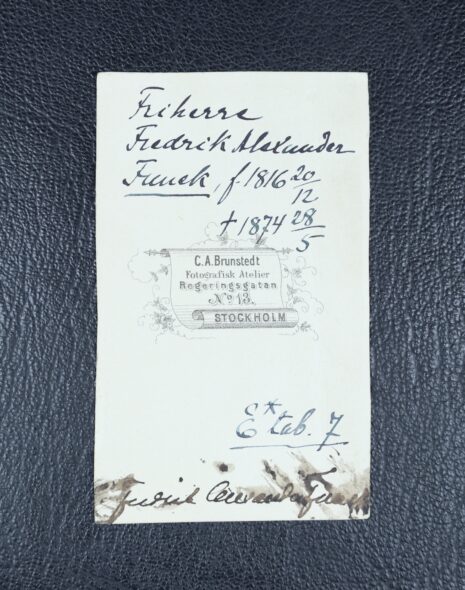 Friherre
Fredrik Alexander
Funck, f. 1816 20/12
† 1874 28/5
C. A. Brunstedt
Fotografisk Atelier
Regeringsgatan
No 13.
STOCKHOLM
E* tab. 7
Fredrik Alexander Funck